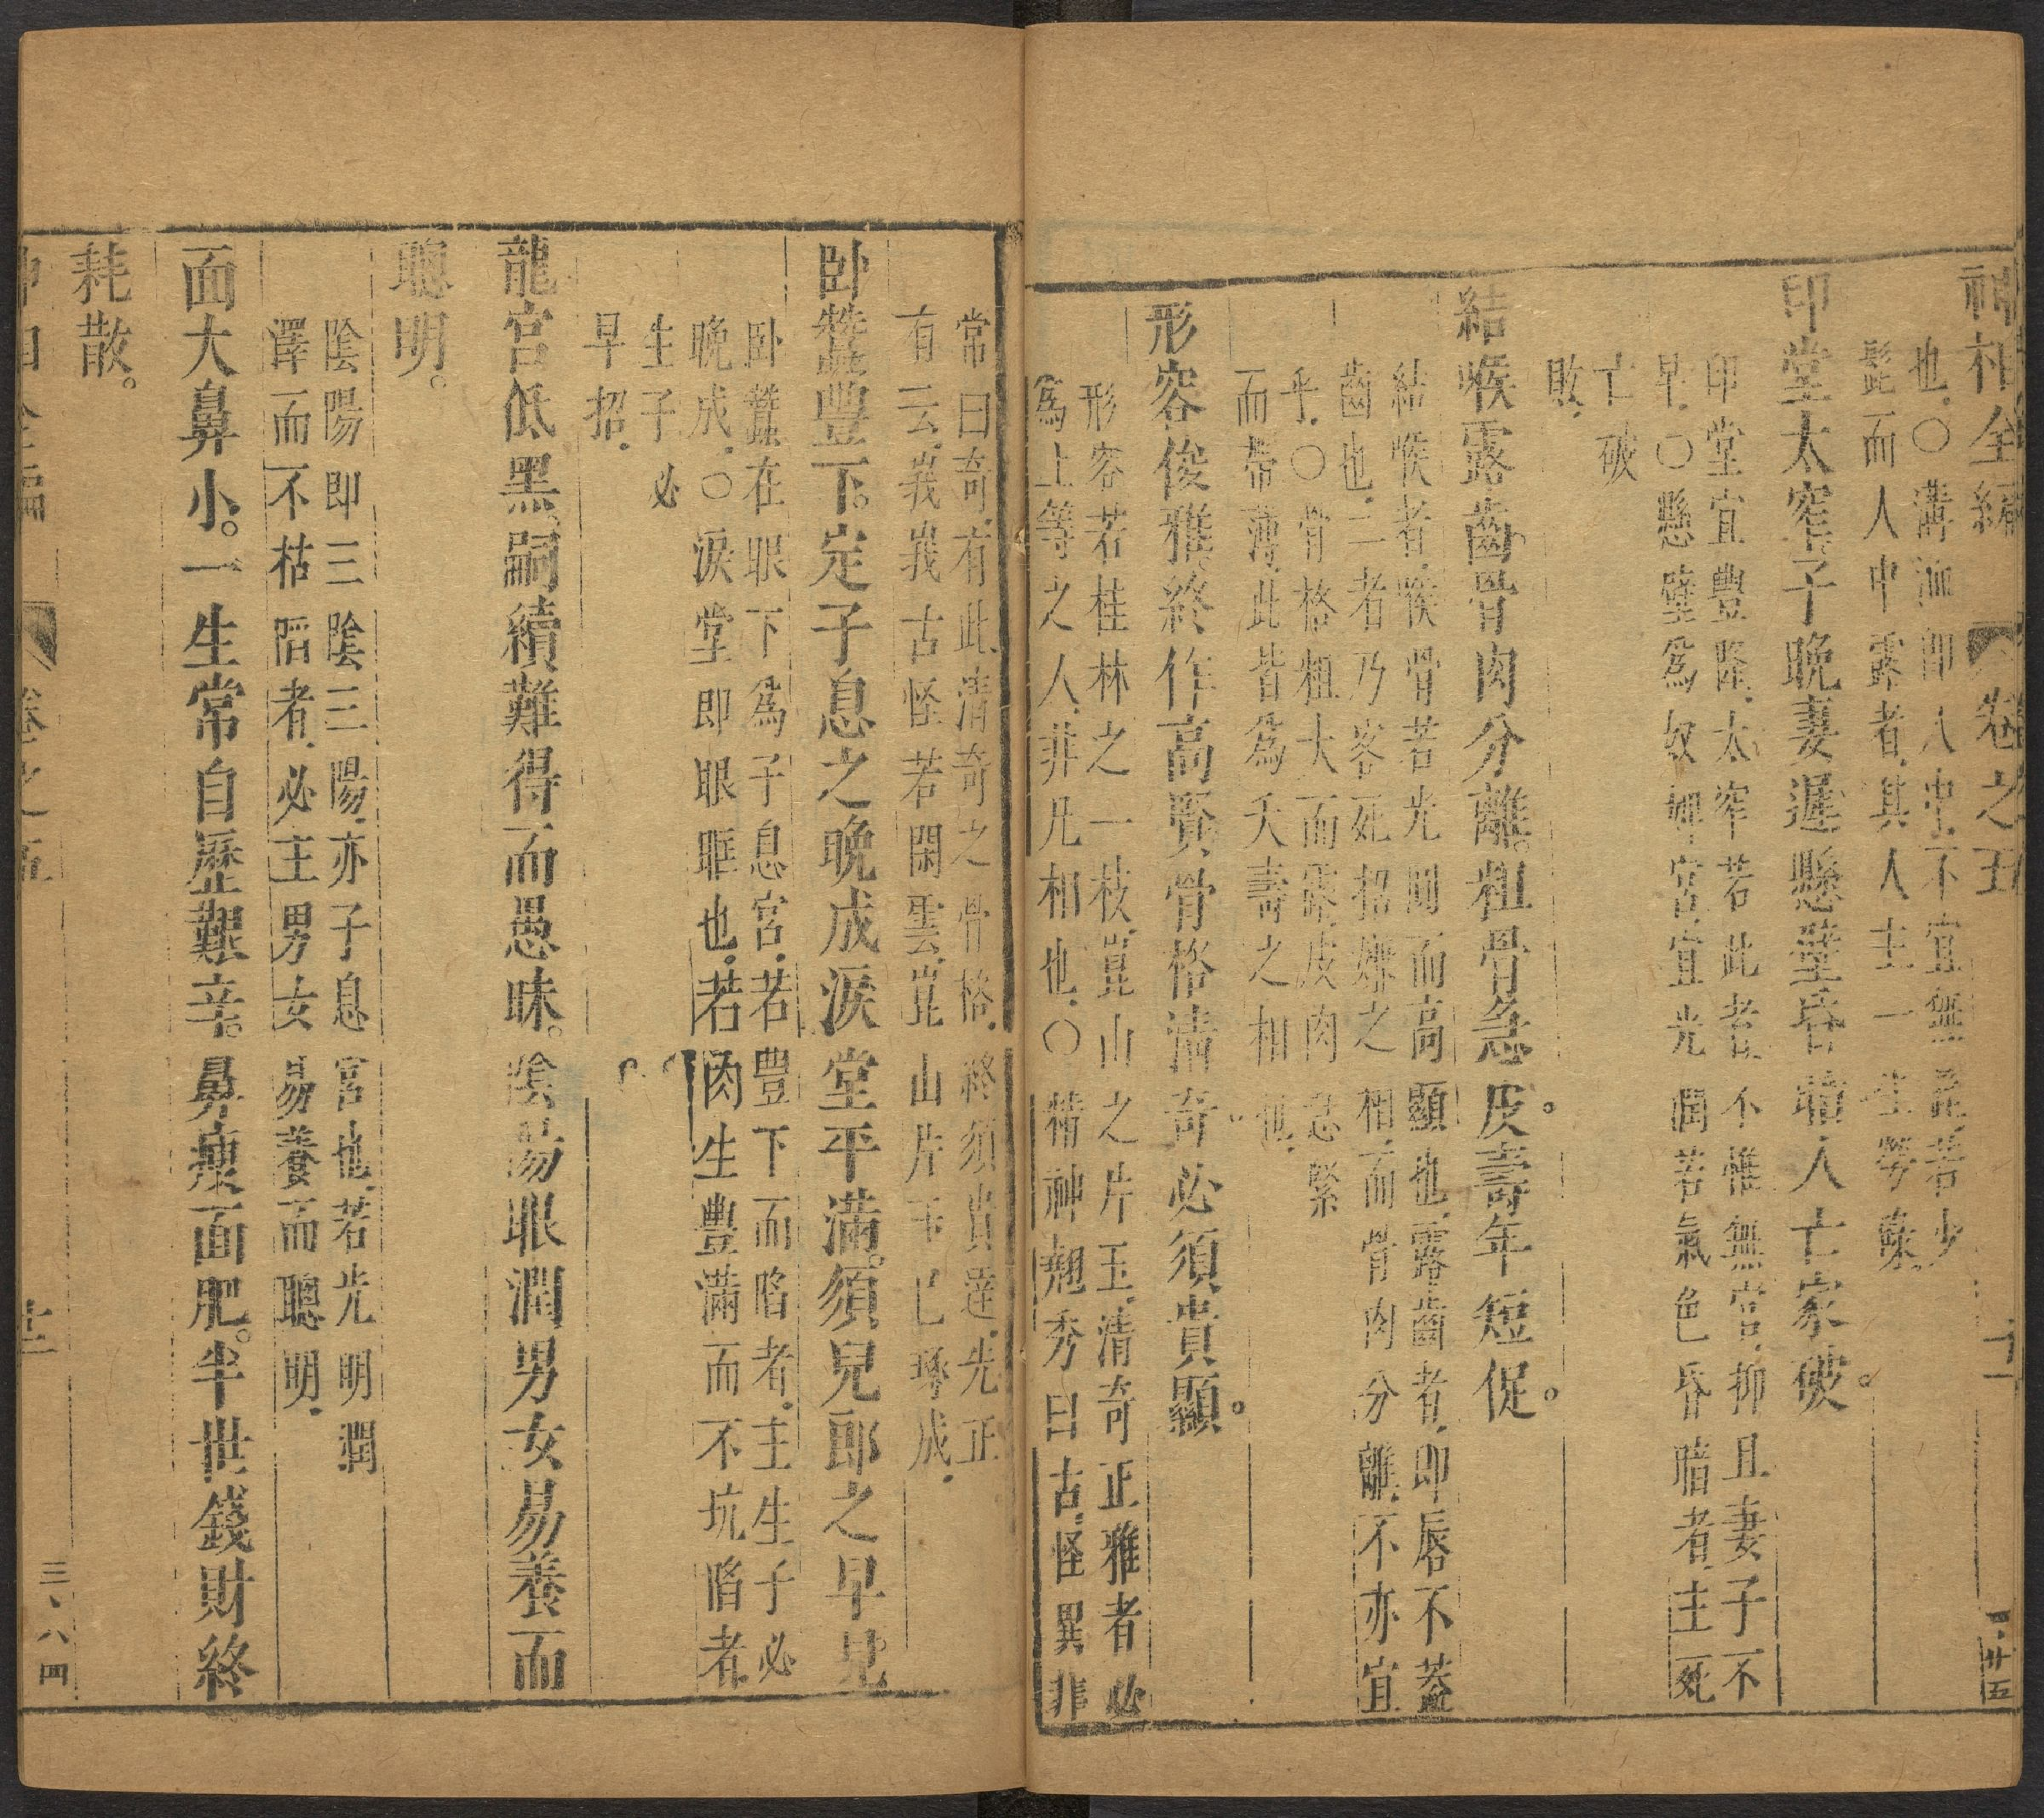 神相全編 卷之五 十一 三·廿五
也〇溝洫即人中不宜無髭若少
髭而人中露者其人主一生勞蘇
印堂太窄子晚妻遲懸壁昏暗人亡家破
印堂宜豐隆太窄若此者不惟無官抑且妻子不
早〇懸壁為奴婢宮宜光潤若氣色昏暗者主死
亡破
敗
結喉露齒骨肉分離粗骨急皮壽年短促
結喉者喉骨若光圓而高顯也露齒者即唇不蓋
齒也二者乃客死招嫌之相而骨肉分離不亦宜
乎〇骨格粗大而露皮肉急緊
而帶薄此皆為夭壽之相也
形容俊雅終作高賢骨格清奇必須貴顯
形容若桂林之一枝崑山之片玉清奇正雅者必
為上等之人非凡相也〇精神翹秀曰古怪異非
常曰奇有此清奇之骨格終須貴達先正
有云峩峩古怪若閑雲崑山片玉已琢成
卧蠶豐下定子息之晚成淚堂平滿須兒郎之早見
卧蠶在眼下為子息宮若豊下而陷者主生子必
晚成〇淚堂即眼眶也若肉生豐滿而不坑陷者
生子必
早招
龍宮低黑嗣續難得而愚昧陰陽眼潤男女易養而
聰明
陰陽即三陰三陽亦子息宮也若光明潤
澤而不枯陷者必主男女易養而聰明
面大鼻小一生常自歷艱辛鼻瘦面肥半世錢財終
耗散
神相全編 卷之五 十二 三·八四